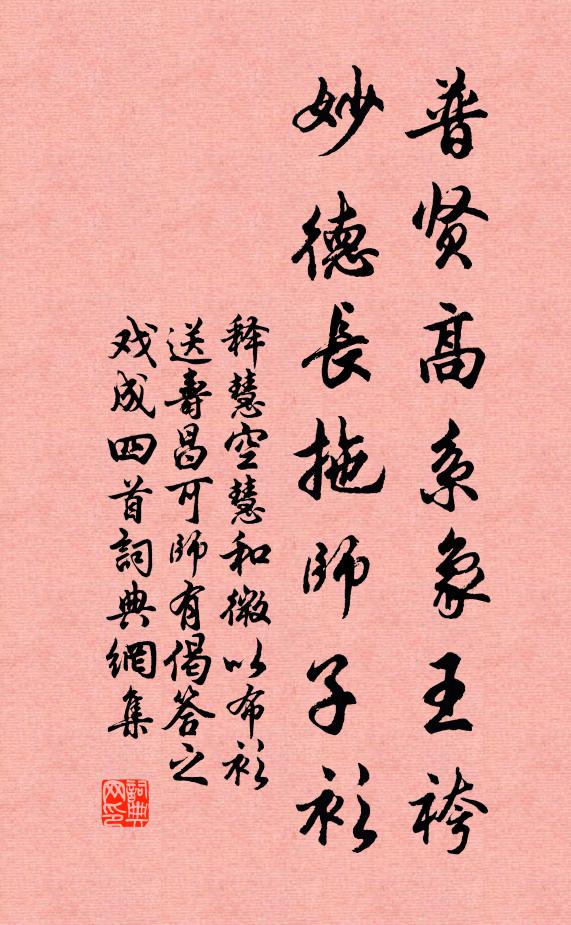 普贤高系象王袴
妙德長拖師子衫
释慧空慧和微以布衫
送壽昌可師有偈答之
戏成四首詞典網集
詞典网印